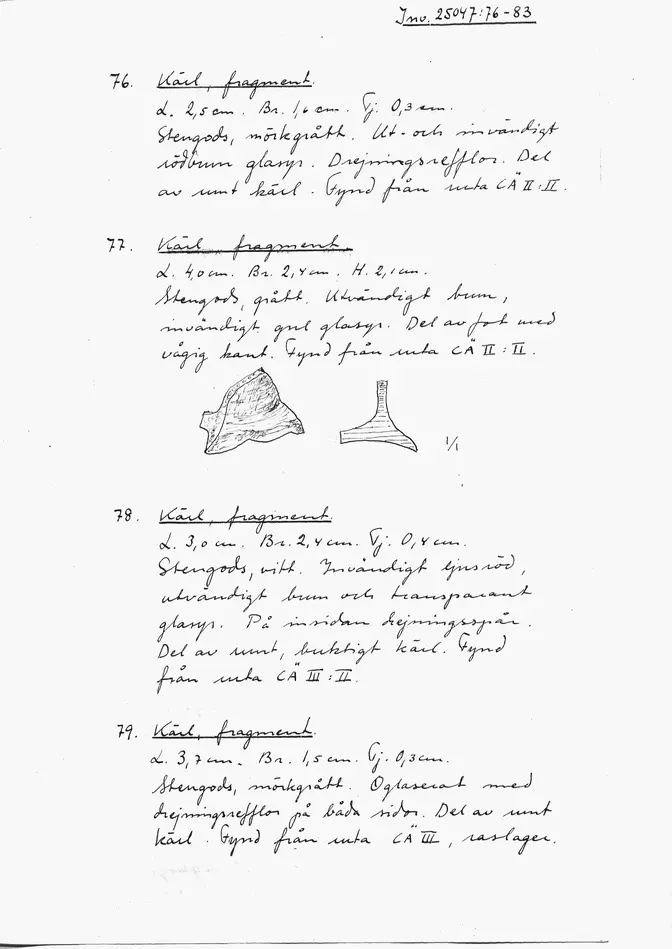 Inv. 25047:76-83
76. Kärl, fragment.
L. 2,5 cm. Br. 1,6 cm. Tj. 0,3 cm.
Stengods, mörkgrått. Ut- och invändigt
rödbrun glasyr. Drejningsrefflor. Del
av runt kärl. Fynd från ruta CÄ II:II.
77. Kärl, fragment.
L. 4,0 cm. Br. 2,4 cm. H. 2,1 cm.
Stengods, grått. Utvändigt brun,
invändigt grå glasyr. Del av fot med
vågig kant. Fynd från ruta CÄ II:II.
1/1
78. Kärl, fragment.
L. 3,0 cm. Br. 2,4 cm. Tj. 0,4 cm.
Stengods, vitt. Invändigt ljusröd,
utvändigt brun och transparant
glasyr. På insidan drejningsspår.
Del av runt, buktigt kärl. Fynd
från ruta CÄ III:II.
79. Kärl, fragment.
L. 3,7 cm. Br. 1,5 cm. Tj. 0,3 cm.
Stengods, mörkgrått. Oglaserat med
drejningsrefflor på båda sidor. Del av runt
kärl. Fynd från ruta CÄ III, raslager.